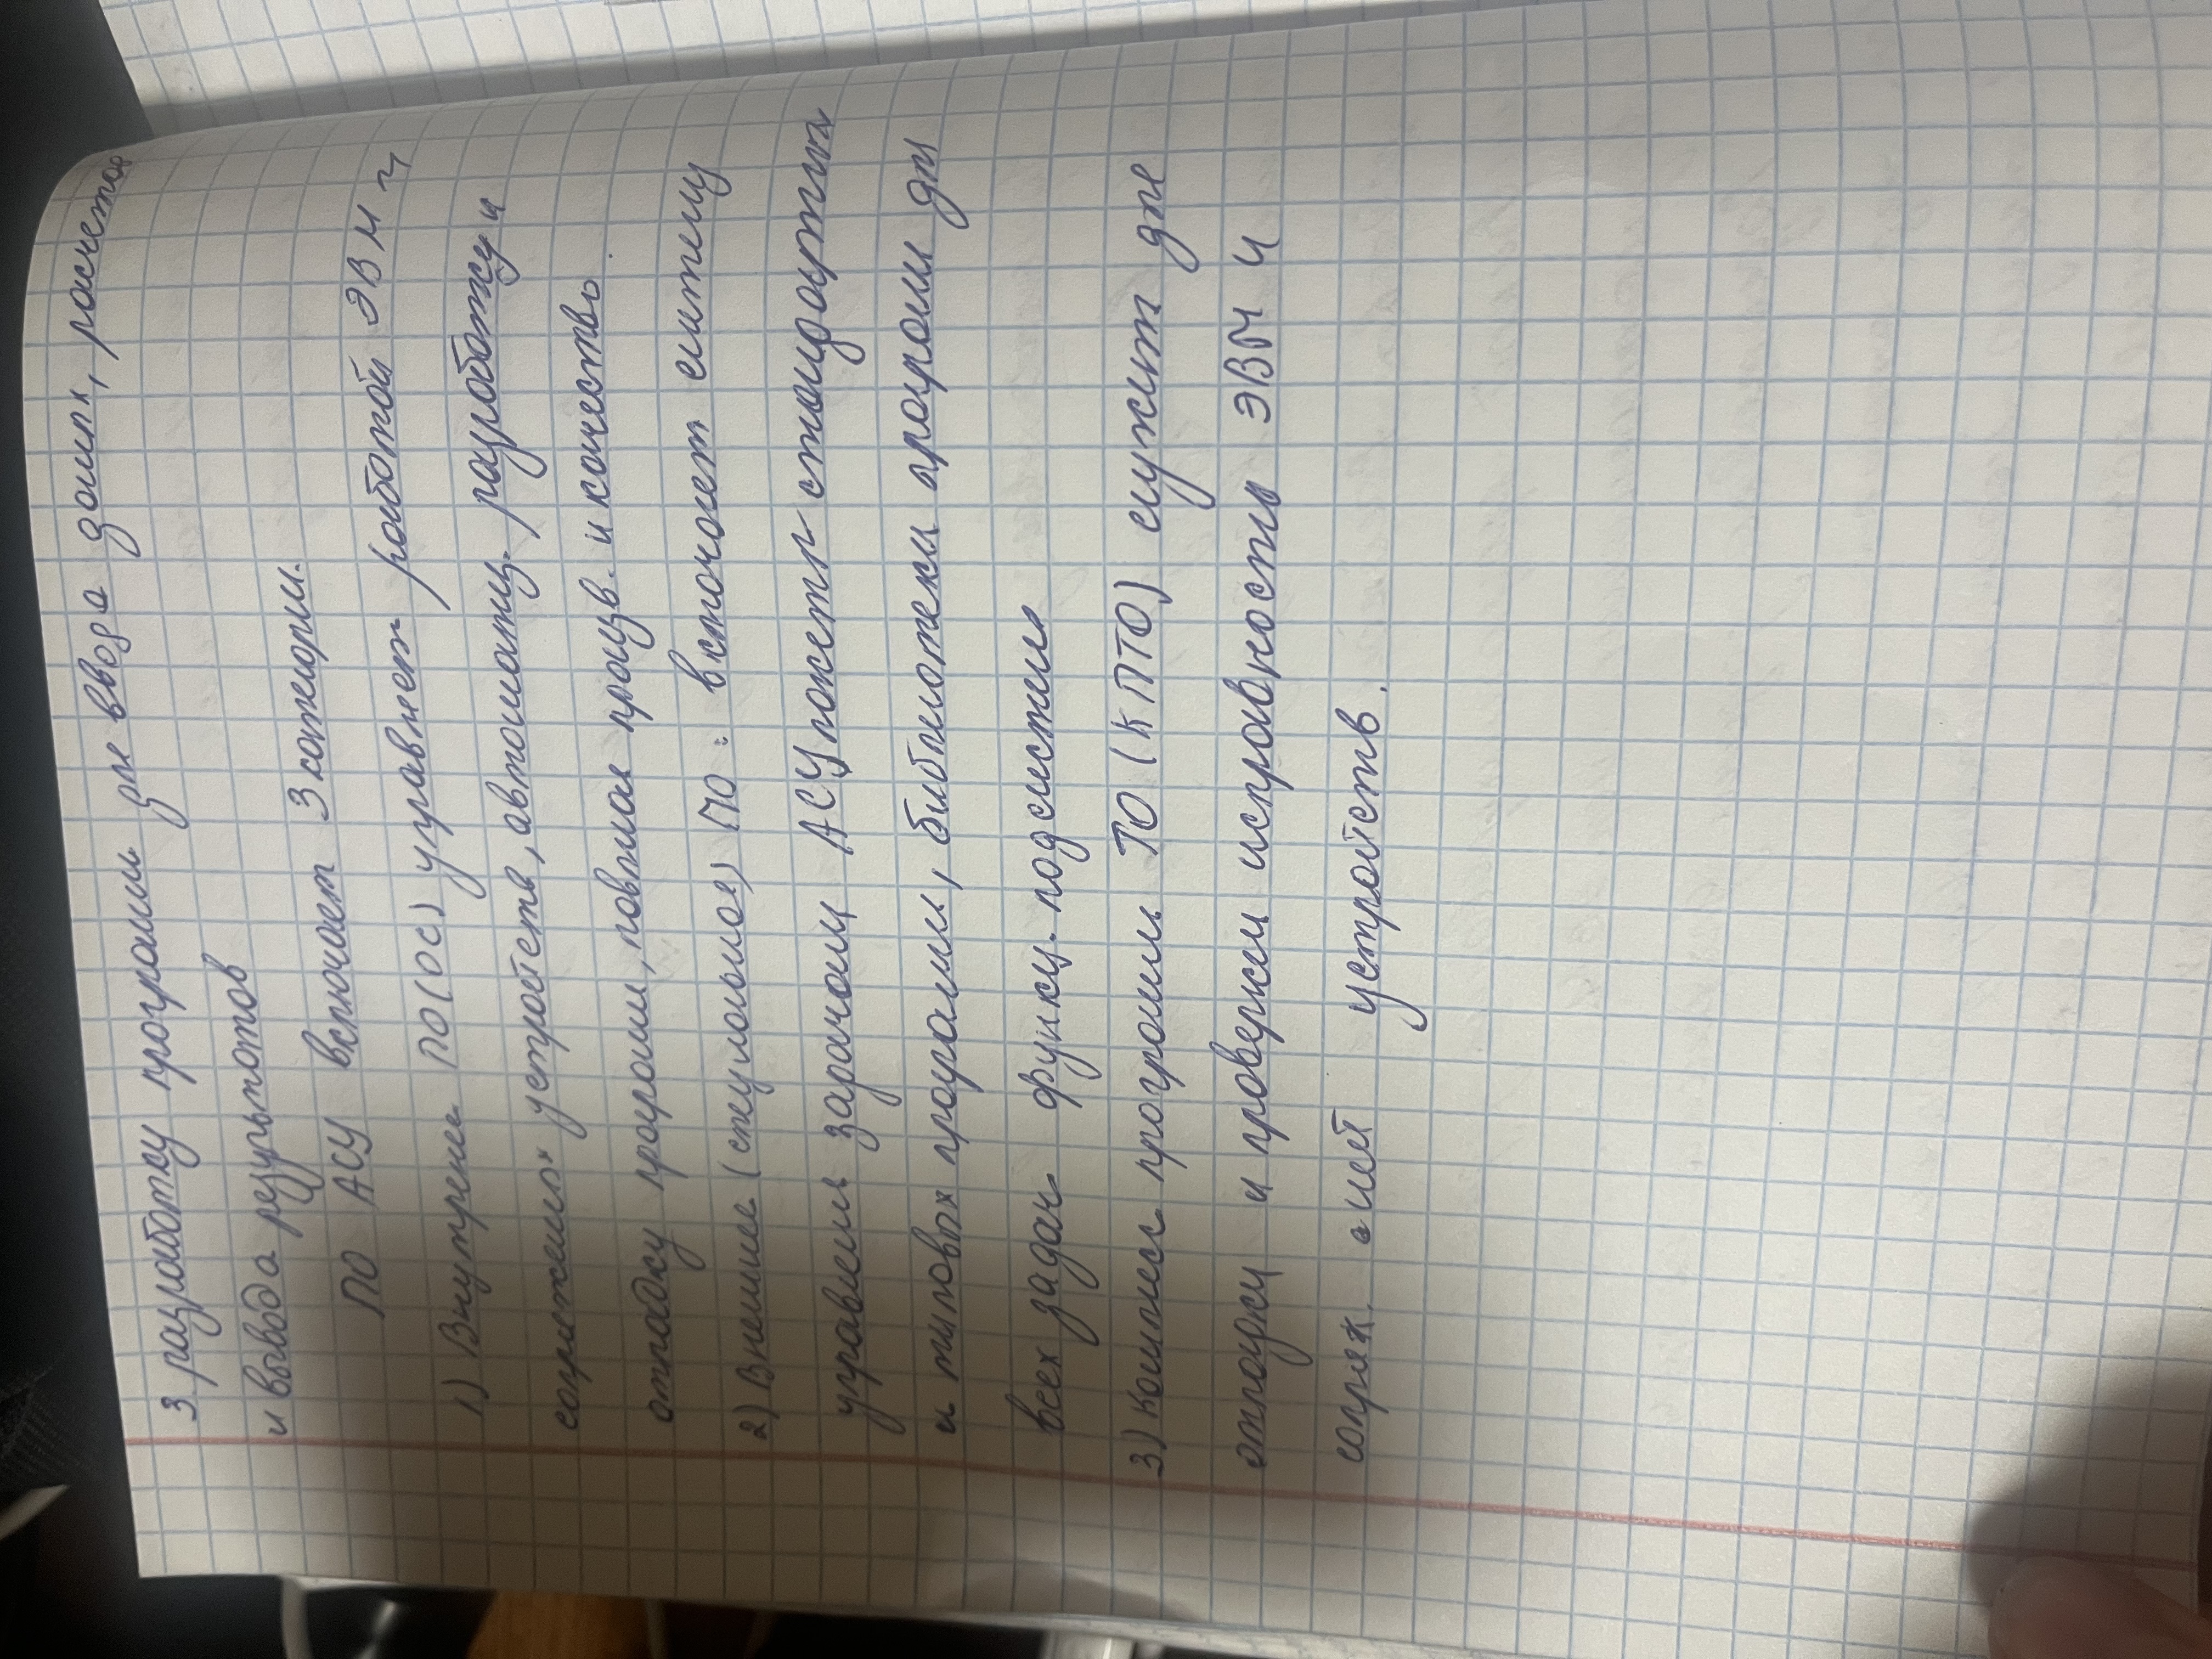 3 разработку программ для ввода даннх, расчетов
и вывода результатов
ПО АСУ включает 3 категории.
1) Внутренее ПО (ОС) управляет работой ЭВМ и
сопряженных устройств, автоматиз. разработку и
отладку программ, повышая произв. и качество.
2) Внешнее (специальное) ПО: включает систему
управления задачами АСУ, пакеты стандартных
и типовых программ, библиотеки программ для
всех задач функц. подсистемы
3) комплекс программ ТО (КПТО) служит для
отладки и проверки исправности ЭВМ и
сопряж. с ней устройств.